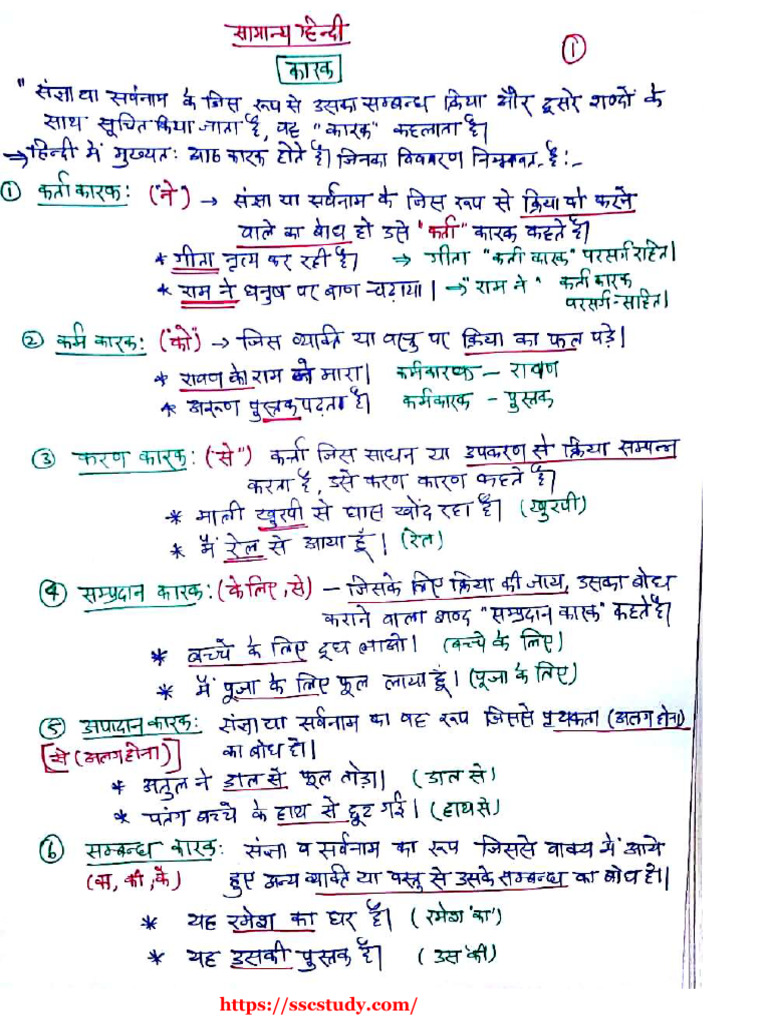 सामान्य हिन्दी
1
कारक
"संज्ञा या सर्वनाम के जिस रूप से उसका सम्बन्ध क्रिया और दूसरे शब्दों के
साथ सूचित किया जाता है, वह "कारक" कहलाता है।
⇒ हिन्दी में मुख्यतः आठ कारक होते हैं। जिनका विवरण निम्नवत् है:-
① कर्ता कारक: ("ने") → संज्ञा या सर्वनाम के जिस रूप से क्रिया को करने
वाले का बोध हो उसे "कर्ता" कारक कहते हैं।
* गीता नृत्य कर रही है। ⇒ गीता "कर्ता कारक" परसर्ग रहित।
* राम ने धनुष पर बाण चढ़ाया। → "राम ने" कर्ता कारक
परसर्ग-सहित।
② कर्म कारक: ("को") → जिस व्यक्ति या वस्तु पर क्रिया का फल पड़े।
* रावण को राम ने मारा। कर्मकारक - रावण
* अरूण पुस्तक पढ़ता है। कर्मकारक - पुस्तक
③ करण कारक: ("से") कर्ता जिस साधन या उपकरण से क्रिया सम्पन्न
करता है, उसे करण कारण कहते हैं।
* माली खुरपी से घास खोंद रहा है। (खुरपी)
* मैं रेल से आया हूँ। (रेल)
④ सम्प्रदान कारक: (के लिए, से) - जिसके लिए क्रिया की जाय, उसका बोध
कराने वाला शब्द "सम्प्रदान कारक" कहते हैं।
* बच्चे के लिए दूध लाओ। (बच्चे के लिए)
* मैं पूजा के लिए फूल लाया हूँ। (पूजा के लिए)
⑤ अपादान कारक: संज्ञा या सर्वनाम का वह रूप जिससे पृथकता (अलग होना)
[से (अलग होना)] का बोध हो।
* अतुल ने डाल से फूल तोड़ा। (डाल से)
* पतंग बच्चे के हाथ से छूट गई। (हाथ से)
⑥ सम्बन्ध कारक: संज्ञा व सर्वनाम का रूप जिससे वाक्य में आये
(का, की, के) हुए अन्य व्यक्ति या वस्तु से उसके सम्बन्ध का बोध हो।
* यह रमेश का घर है। (रमेश 'का')
* यह उसकी पुस्तक है। (उस 'की')
https://sscstudy.com/